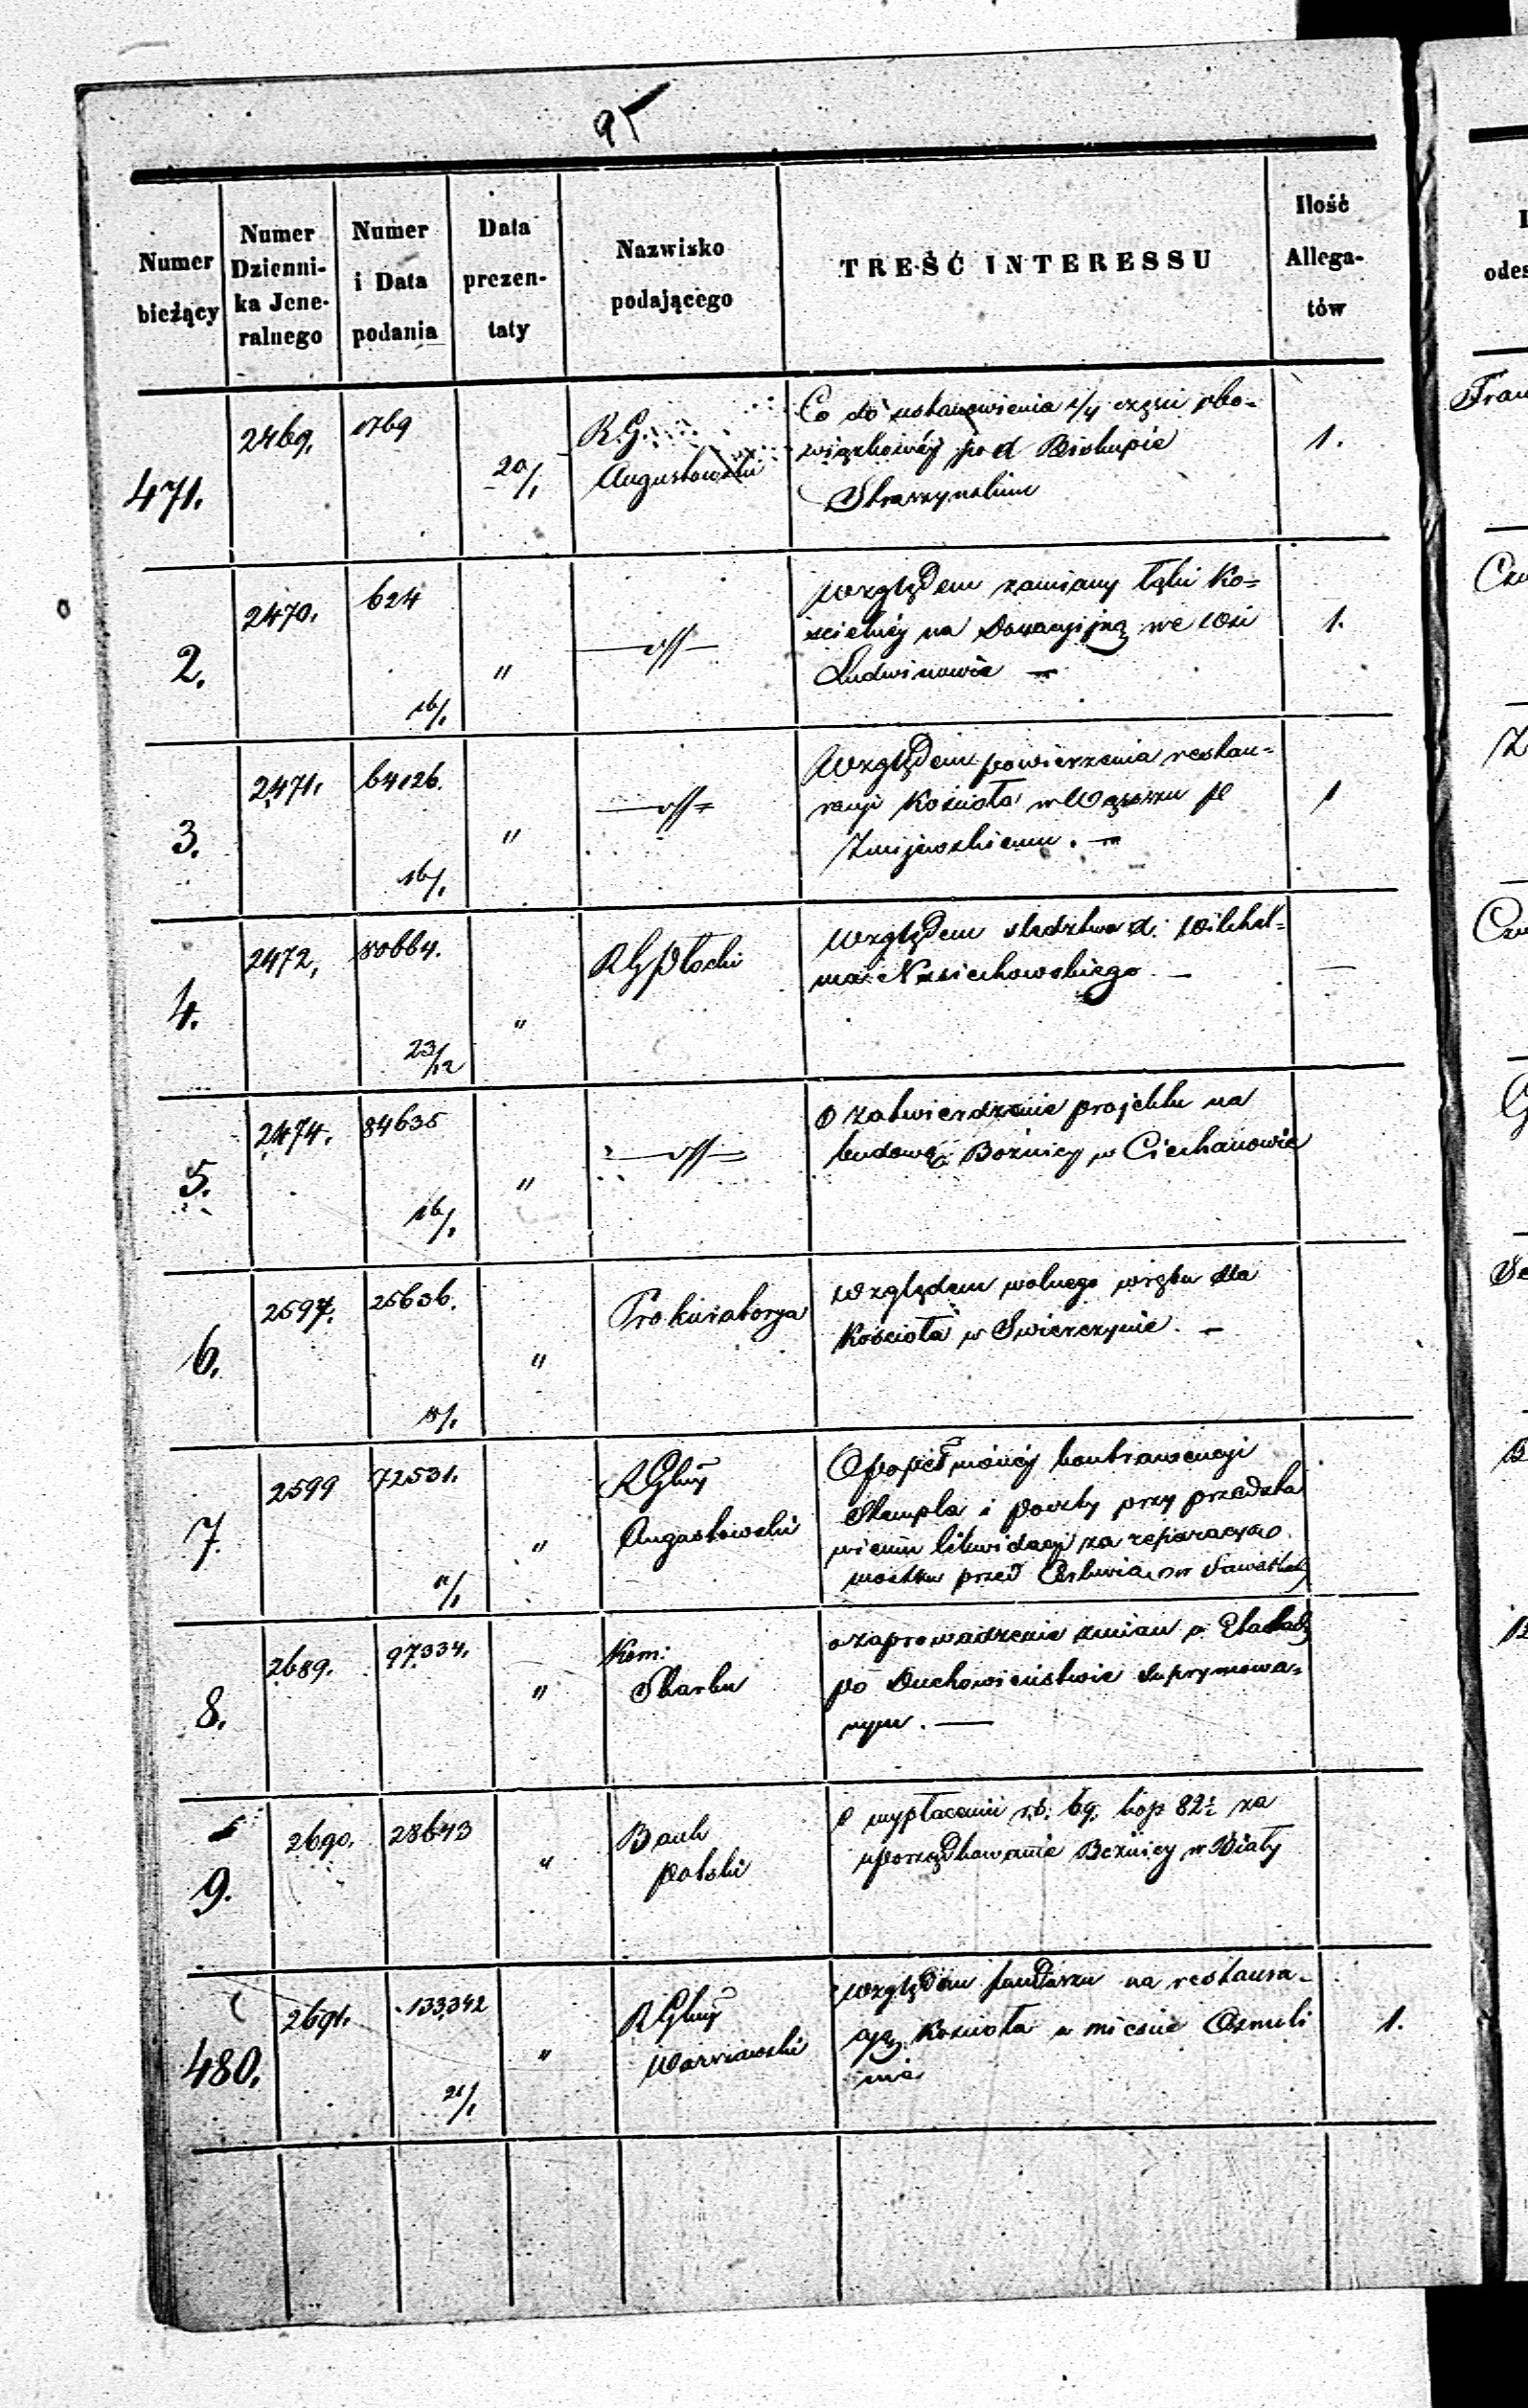 95
Numer bieżący
Numer Dziennika Jeneralnego
Numer i Data podania
Data prezentaty
Nazwisko podającego
TREŚĆ INTERESSU
Ilość Allegatów
471. 2469. 1769 20/1 R. G. Augustowski
Co do ustanowienia 1/4 części obo-
wiązkowéj po d Biskupie
Straszynskim
1.
2. 2470. 624 16/1 " —dtt—
Względem zamiany łąki Ko-
ścielnéj na Donacyjną we Wsi
Ludwinowie —
1.
3. 2471. 64126. 16/1 " —dtt—
Względem powierzenia restau-
racji Kościoła w Wąsoszu
Zmijewskiemu. —
1
4. 2472. 80664. 23/12 " RG Płocki
Względem śledztwa d. Wilhel-
ma
—
5. 2474. 84635 16/1 " —dtt—
O zatwierdzenie projektu na
budowę Bożnicy w Ciechanowie
6. 2597. 25636. " Prokuratorya
Względem wolnego wrębu dla
Kościoła w Swierczynie. —
7. 2599 72531. " RGlny Augustowski
O popełnionéj kontrawencyi
Stempla i Poczty przy przedsta
wieniu likwidacji za reparacyą
mostku przed Cerkwią w Suwałkach
8. 2689. 97334. " Kom: Skarbu
o zaprowadzenie zmian w Etatach
po Duchowieństwie Suprymowa-
nym. —
9. 2690. 28643 " Bank Polski
O wypłaceniu rs. 69. kop 82½ za
uporządkowanie Bożnicy w Biały
480. 2691. 133342 21/1 " RGlny Warszawski
Względem funduszu na restaura-
cyą Kościoła w mieście Osmoli
nie
1.